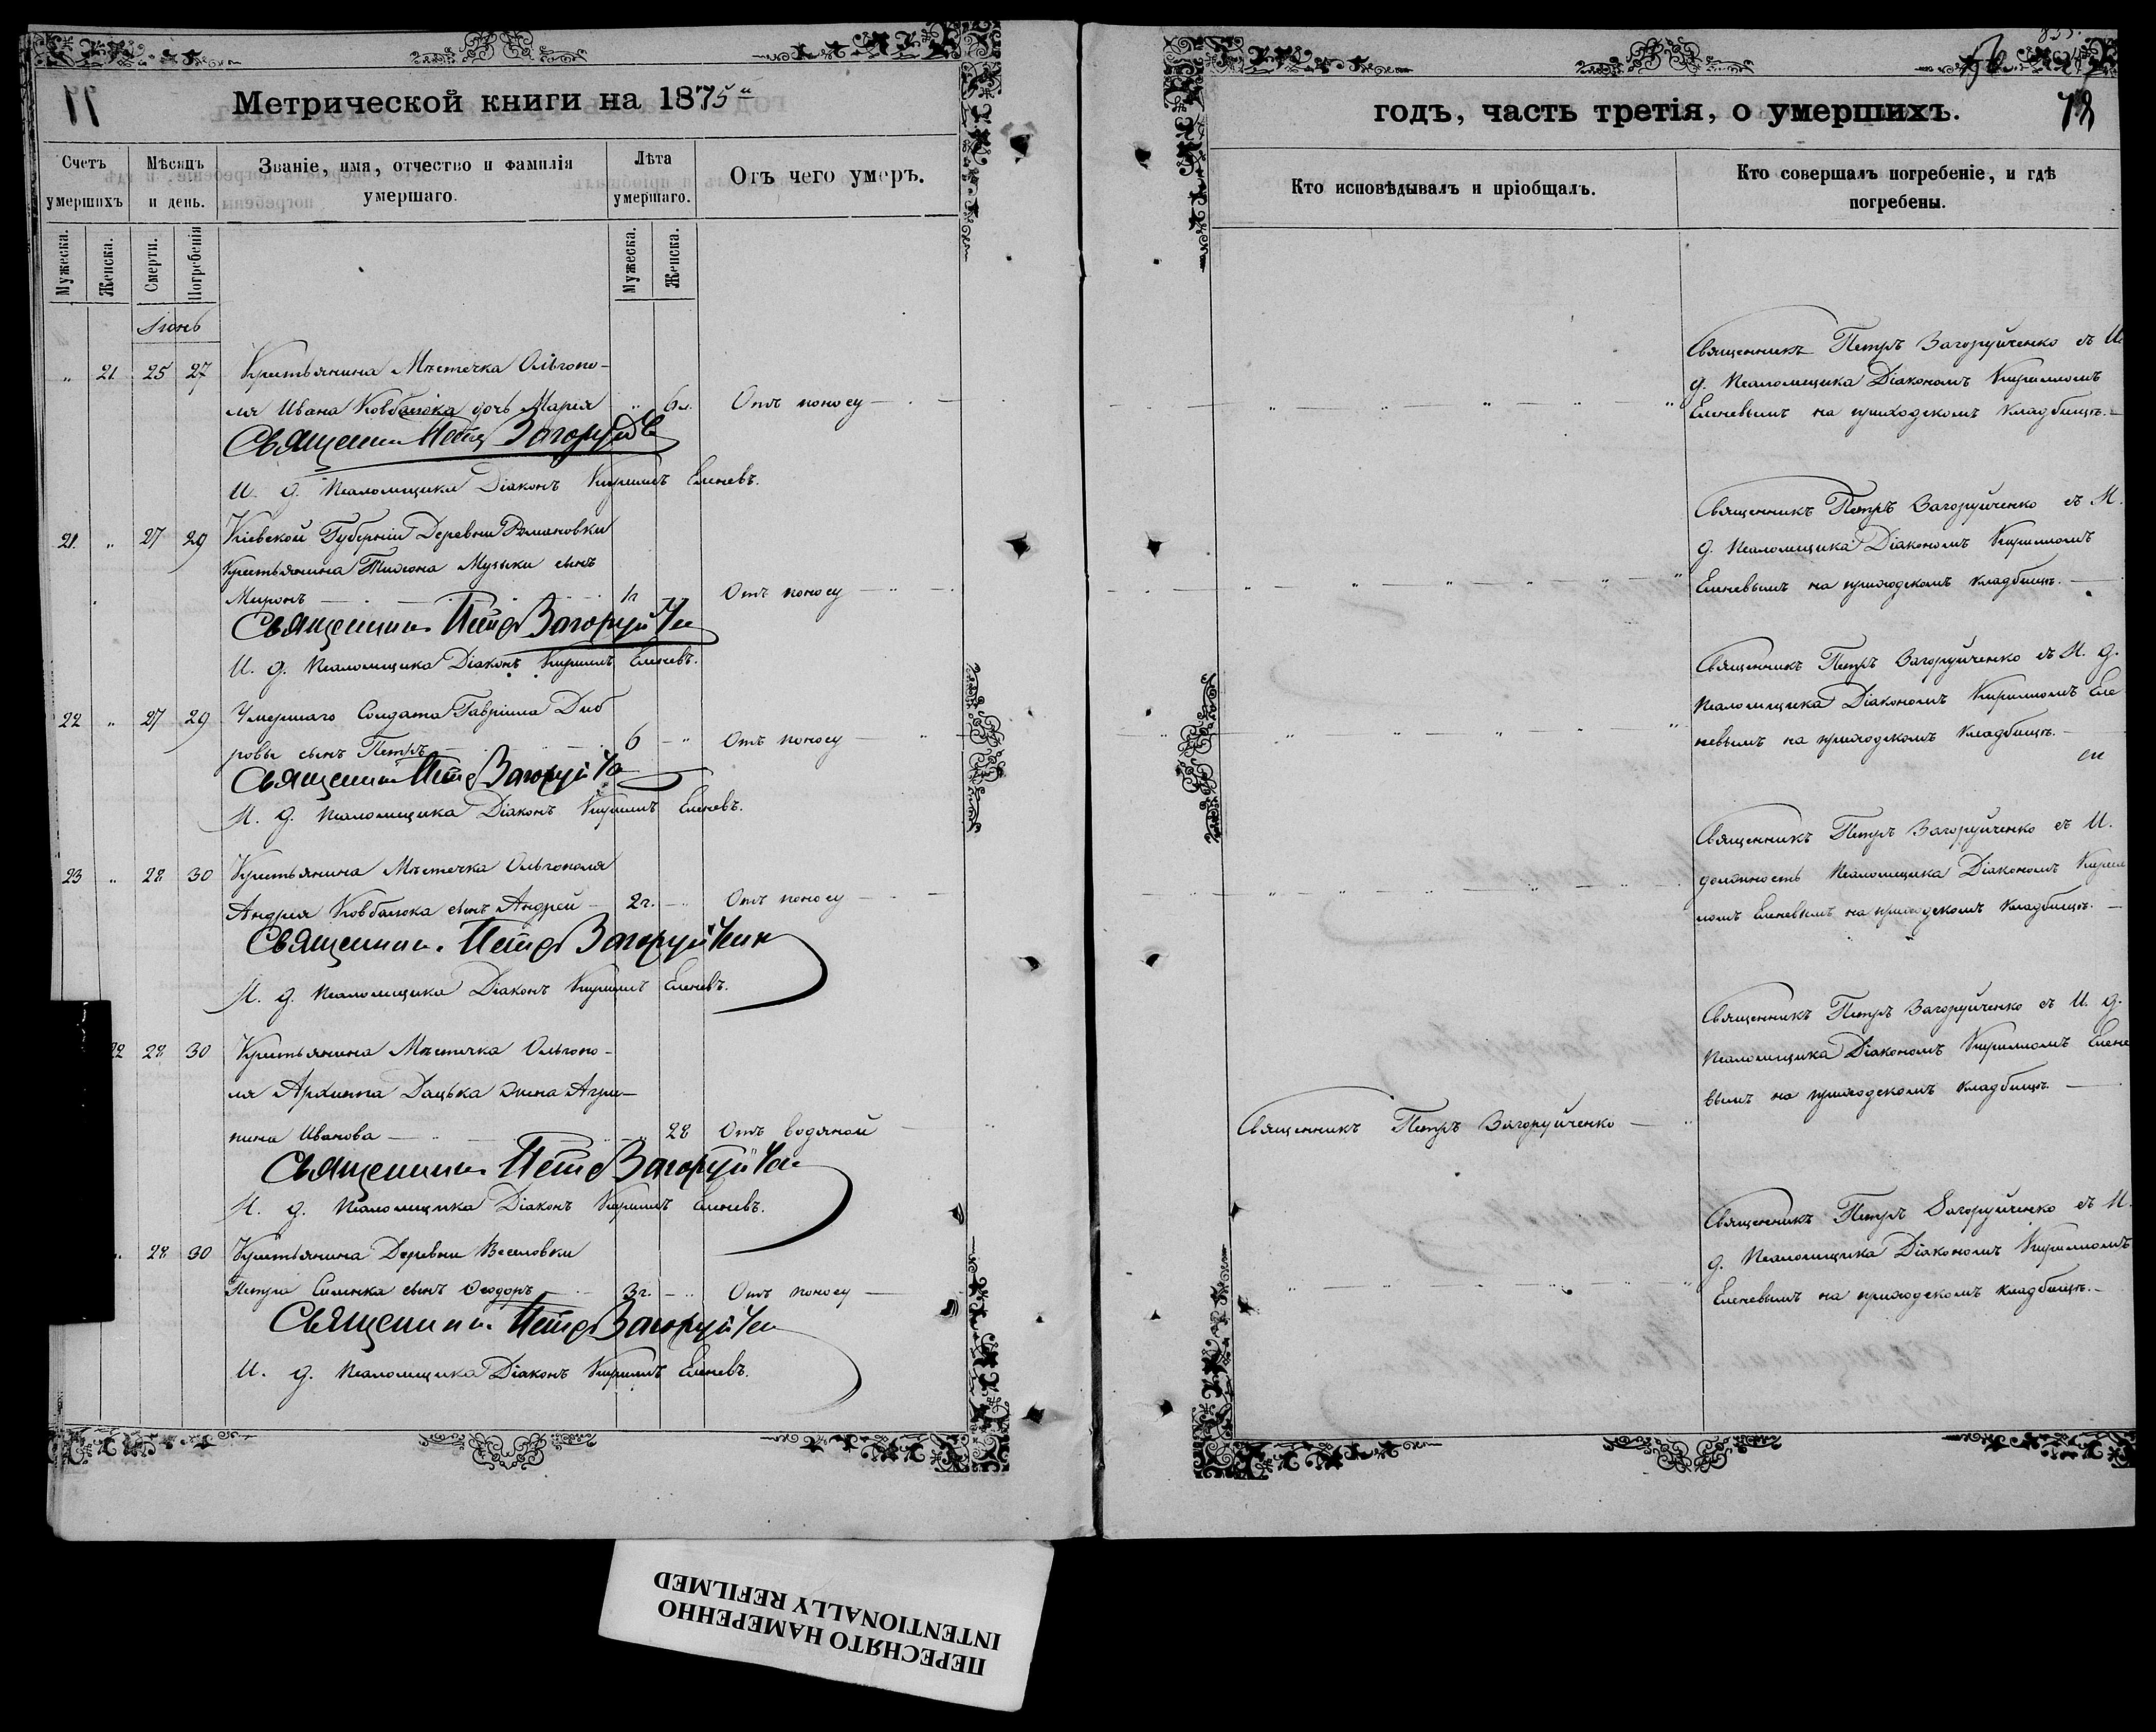 Метрической книги на 1875й
Счетъ умершихъ
Мѣсяцъ и день.
Званіе, имя, отчество и фамилія умершаго.
Лѣта умершаго.
Отъ чего умеръ.
Мужеска.
Женска.
Смерти.
Погребенія
Мужеска.
Женска.
Іюнь
„ 21 25 27 Крестьянина Мѣстечка Ольгопо-
ля Ивана Ковбасюка дочь Марія „ 6 Отъ поносу
Священникъ Петръ Загоруйч
И. д. Псаломщика Діаконъ Кириллъ Еленевъ.
21. „ 27 29 Кіевской Губерніи Деревни Романовки
Крестьянина Тихона Музыки сынъ
Миронъ 1г Отъ поносу
Священникъ Петръ Загоруйче
И. д. Псаломщика Діаконъ Кириллъ Еленевъ.
22 „ 27 29 Умершаго Солдата Гавріила Диб
ровы сынъ Петръ 6 „ Отъ поносу
Священникъ Петръ Загоруйч
И. д. Псаломщика Діаконъ Кириллъ Еленевъ.
23 „ 28 30 Крестьянина Мѣстечка Ольгополя
Андрея Ковбасюка сынъ Андрей 2г. Отъ поносу
Священникъ Петръ Загоруйченк
И. д. Псаломщика Діаконъ Кириллъ Еленевъ.
22 28 30 Крестьянина Мѣстечка Ольгопо-
ля Архиппа Дацька жена Агри-
пина Иванова 28 Отъ водяной
Священникъ Петръ Загоруйче
И. д. Псаломщика Діаконъ Кириллъ Еленевъ.
„ 28 30 Крестьянина Деревни Веселовки
Петра сынъ Ѳеодоръ 3г. Отъ поносу
Священникъ Петръ Загоруйче
И. д. Псаломщика Діаконъ Кириллъ Еленевъ.
годъ, часть третія, о умершихъ.
78
Кто исповѣдывалъ и пріобщалъ.
Кто совершалъ погребеніе, и гдѣ погребены.
Священникъ Петръ Загоруйченко съ И.
д. Псаломщика Діакономъ Кирилломъ
Еленевымъ на приходскомъ кладбищѣ.
Священникъ Петръ Загоруйченко съ И.
д. Псаломщика Діакономъ Кирилломъ
Еленевымъ на приходскомъ кладбищѣ.
Священникъ Петръ Загоруйченко съ И. д.
Псаломщика Діакономъ Кирилломъ Еле
невымъ на приходскомъ кладбищѣ.
Священникъ Петръ Загоруйченко съ И.
должность Псаломщика Діакономъ Кирил
ломъ Еленевымъ на приходскомъ кладбищѣ.
Священникъ Петръ Загоруйченко съ И. д.
Псаломщика Діакономъ Кирилломъ Елене
вымъ на приходскомъ кладбищѣ
Священникъ Петръ Загоруйченко
Священникъ Петръ Загоруйченко съ И.
д. Псаломщика Діакономъ Кирилломъ
Еленевымъ на приходскомъ кладбищѣ.
ПЕРЕСНЯТО НАМЕРЕННО
INTENTIONALLY REFILMED